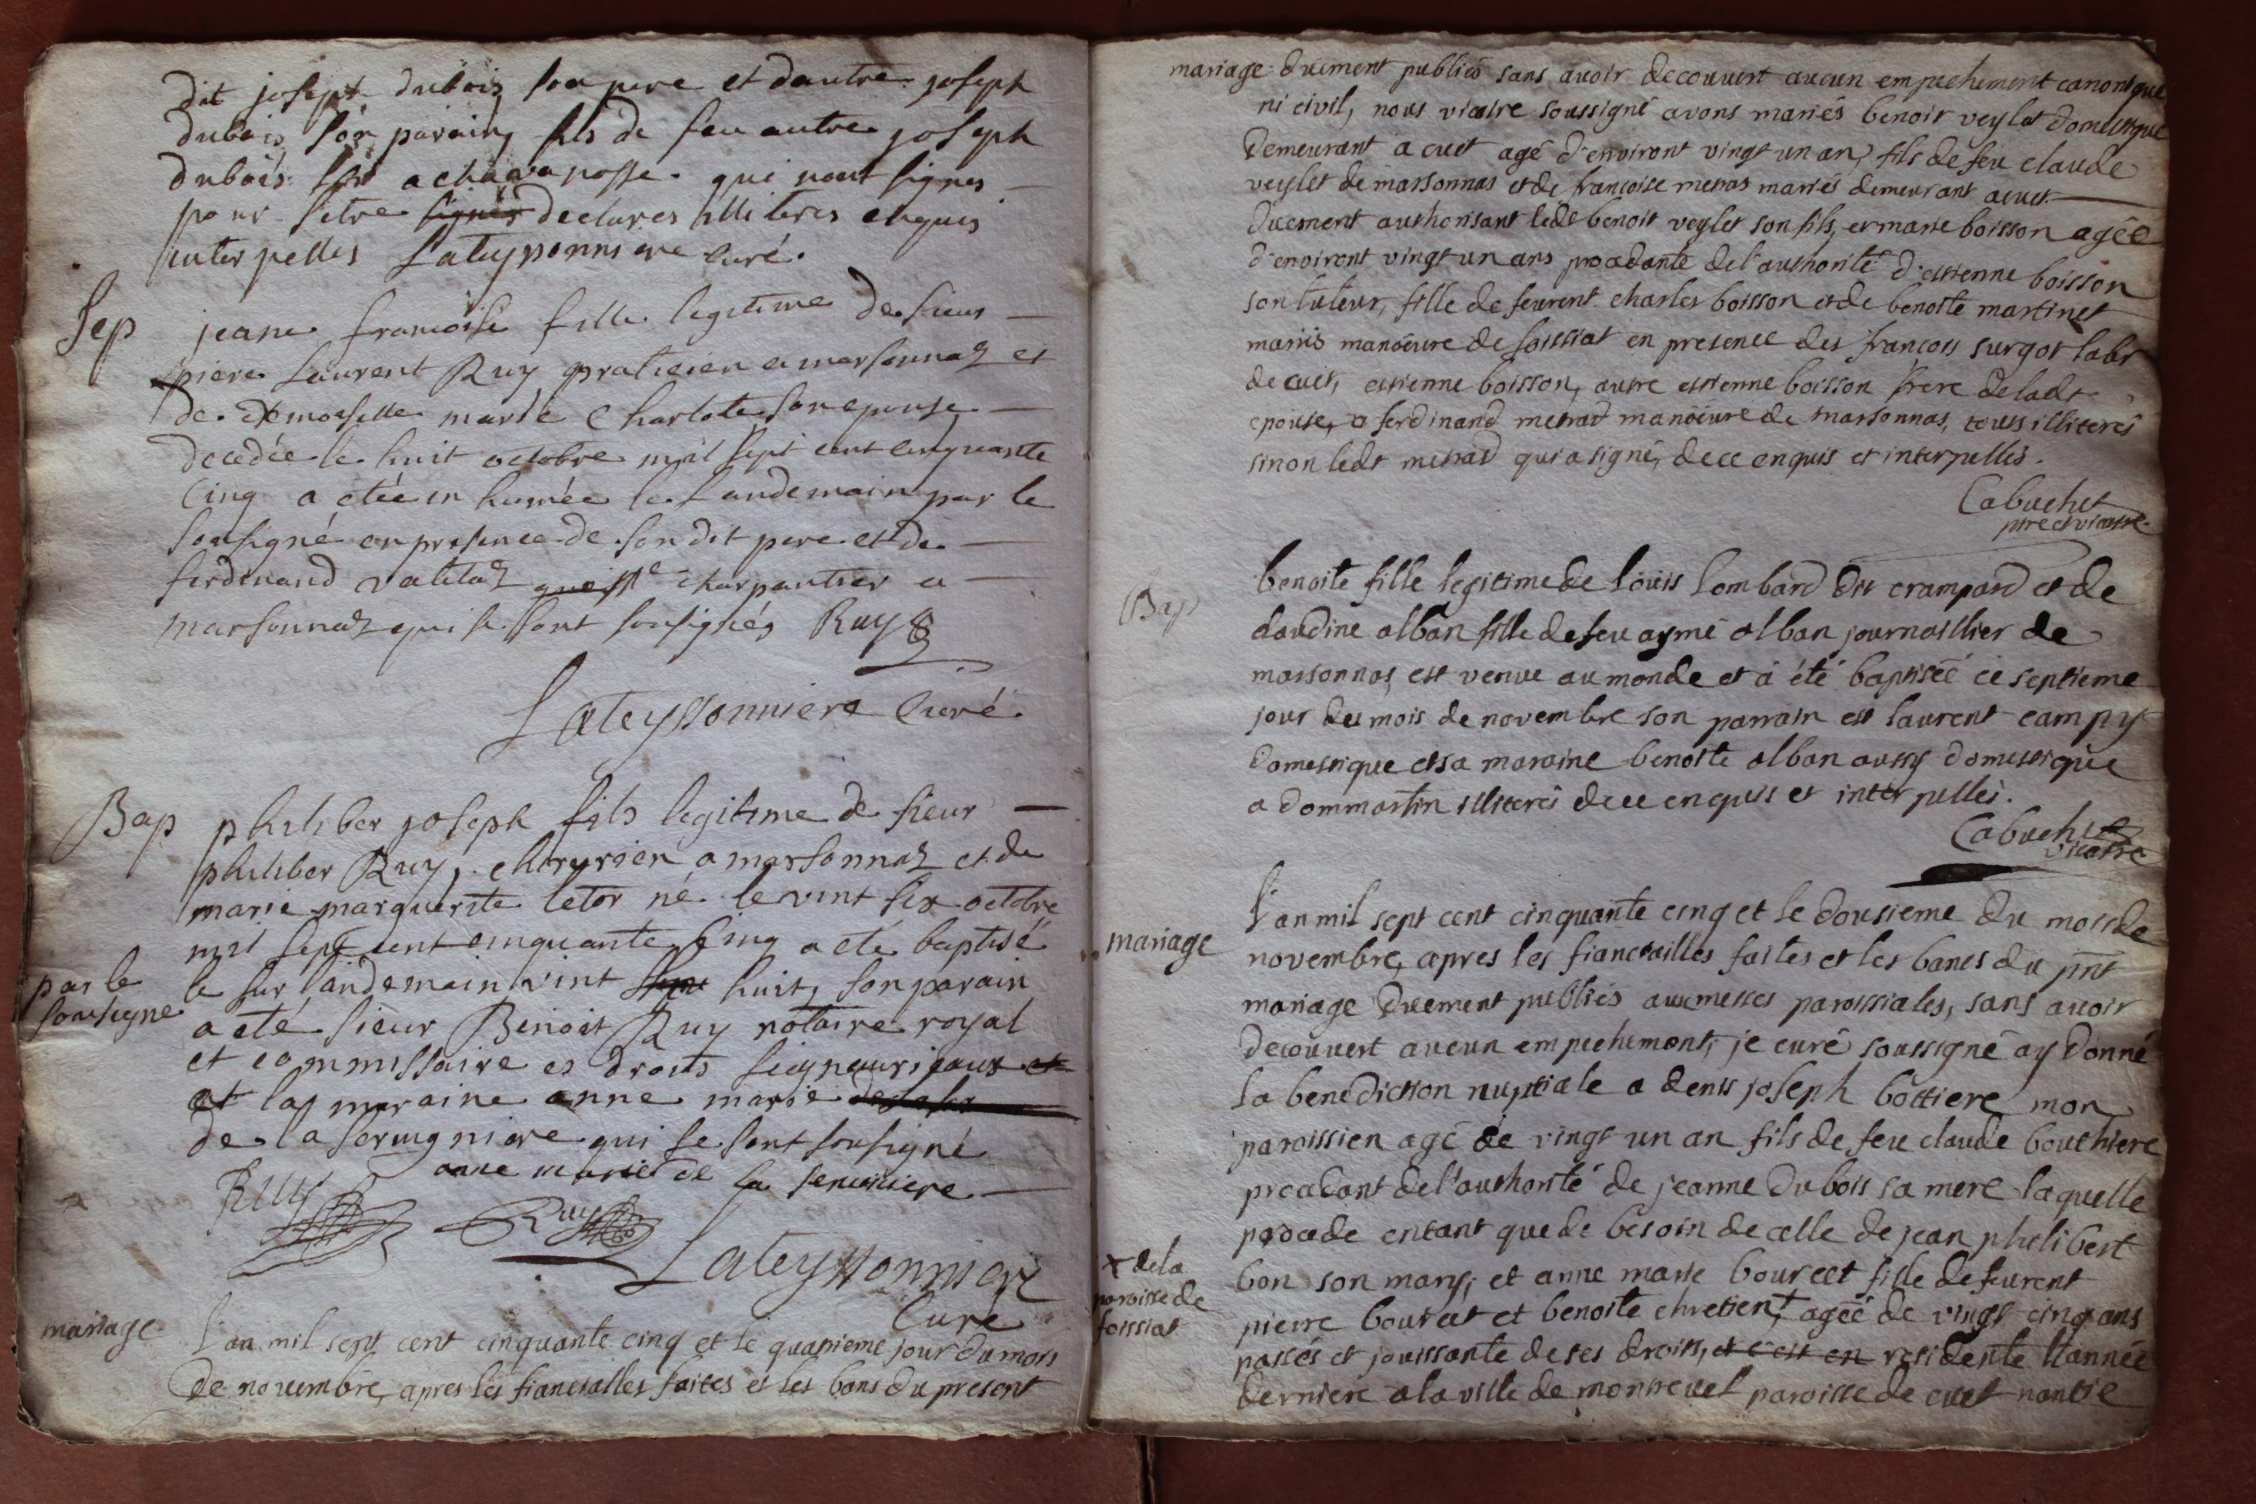 dit joseph dubois son pere et dautre joseph
dubois son parain fils de feu autre joseph
dubois a chavanosse qui nont signes
pour setre signés declares illiteres enquis
interpelles Lateyssonniere curé.
Sep
jeane francoise fille legitime de sieur
piere Laurent Ruy praticien a marsonnaz et
de demoiselle marie Charlote son epouse
decedée le huit octobre mil sept cent cinquante
Cinq a etée inhumée le Landemain par le
sousigné en presence de son dit pere et de
ferdinand charpantier a
marsonnaz qui se sont sousignés Ruy
Lateyssonniere Curé
Bap
philiber joseph fils legitime de sieur
philiber Ruy, chiryrien a marsonnaz et de
marie marguerite letor né le vint six octobre
mil sept cent cinquante Cinq a eté baptisé
par le
sousigne
le sur landemain vint huit, son parain
a eté sieur Benoit Ruy notaire royal
et commissaire es droits seigneuriaux et
et la maraine anne marie
de la serugniere qui se sont sousigné
anne marie de la serugniere
Ruy
Ruy
Lateyssonniere
Curé
mariage
l'an mil sept cent cinquante cinq et le quatrieme jour du mois
de novembre, apres les fiancialles faites et les bans du present
mariage duement publiés sans avoir decouvert aucun empechement canonique
ni civil, nous vicaire soussigné avons mariés benoit veylet domestique
demeurant a cuet agé d'environt vingt un an, fils de feu claude
veylet de marsonnas et de francoise metras mariés demeurant a cuet
duement authorisant ledt benoit veylet son fils, et marie boisson agée
d'environt vingt un ans procedante de l'authorité d'estienne boisson
son tuteur, fille de feurent charles boisson et de benoite martinet
mariés manoeuvre de foissiat en presence des francois surgot labr
de cuet, estienne boisson, autre estienne boisson frere de ladt
epouse, et ferdinand metrad manoeuvre de marsonnas, tous illiterés
sinon ledt metrad qui a signé, de ce enquis et interpellés.
Cabuchet
ptre et vicaire
Bap
benoite fille legitime de loüis lombard dit crampard et de
claudine alban fille de feu aymé alban journallier de
marsonnas, est venue au monde et a été baptiséé ce septieme
jour du mois de novembre son parrain est laurent campy
domestique et sa maraine benoite alban aussy domestique
a dommartin illiterés de ce enquis et interpellés.
Cabuchet
vicaire
mariage
l'an mil sept cent cinquante cinq et le dousieme du mois de
novembre, apres les fiancailles faites et les bancs du pnt
mariage duement publiés aux messes paroissiales, sans avoir
decouvert aucun empechement, je curé soussigné ay donné
la benediction nuptiale a denis joseph bottiere mon
paroissien agé de vingt un an fils de feu claude bouthiere
procedant de l'authorité de jeanne dubois sa mere laquelle
procede entant que de besoin de celle de jean philibert
bon son mary, et anne marie bourcet fille de feurent
x de la
paroisse de
foissiat
pierre bourcet et benoite chretien + agéé de vingt cinq ans
passés et jouissante de ses droits, et c'est en residente l'année
derniere a la ville de montrevel paroisse de cuet nantie